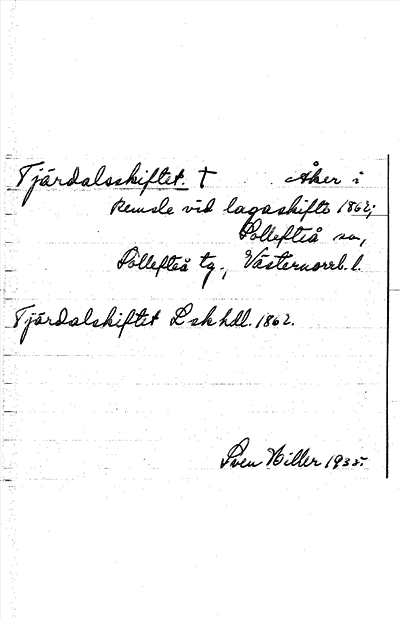 Tjärdalsskiftet. † Åker i
Remsle vid lagaskifte 1862;
Sollefteå sn,
Sollefteå tg., Västernorrb. l.
Tjärdalskiftet L sk hdl. 1862.
Sven Hiller 1935.